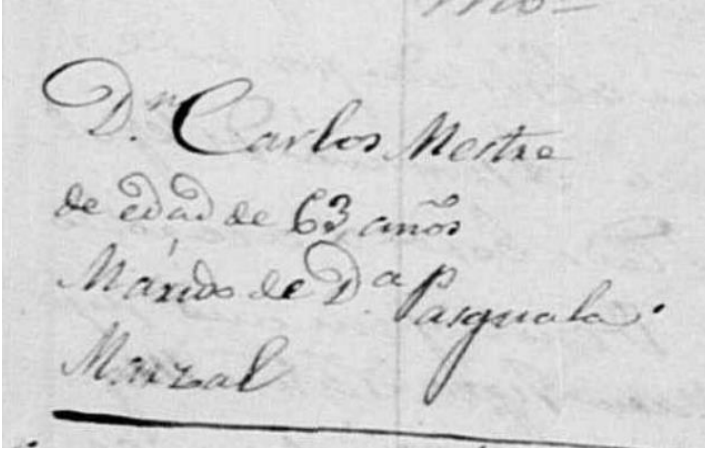 D.n Carlos Mestre
de edad de 63 años
Marido de D.a Pasquala
Marzal